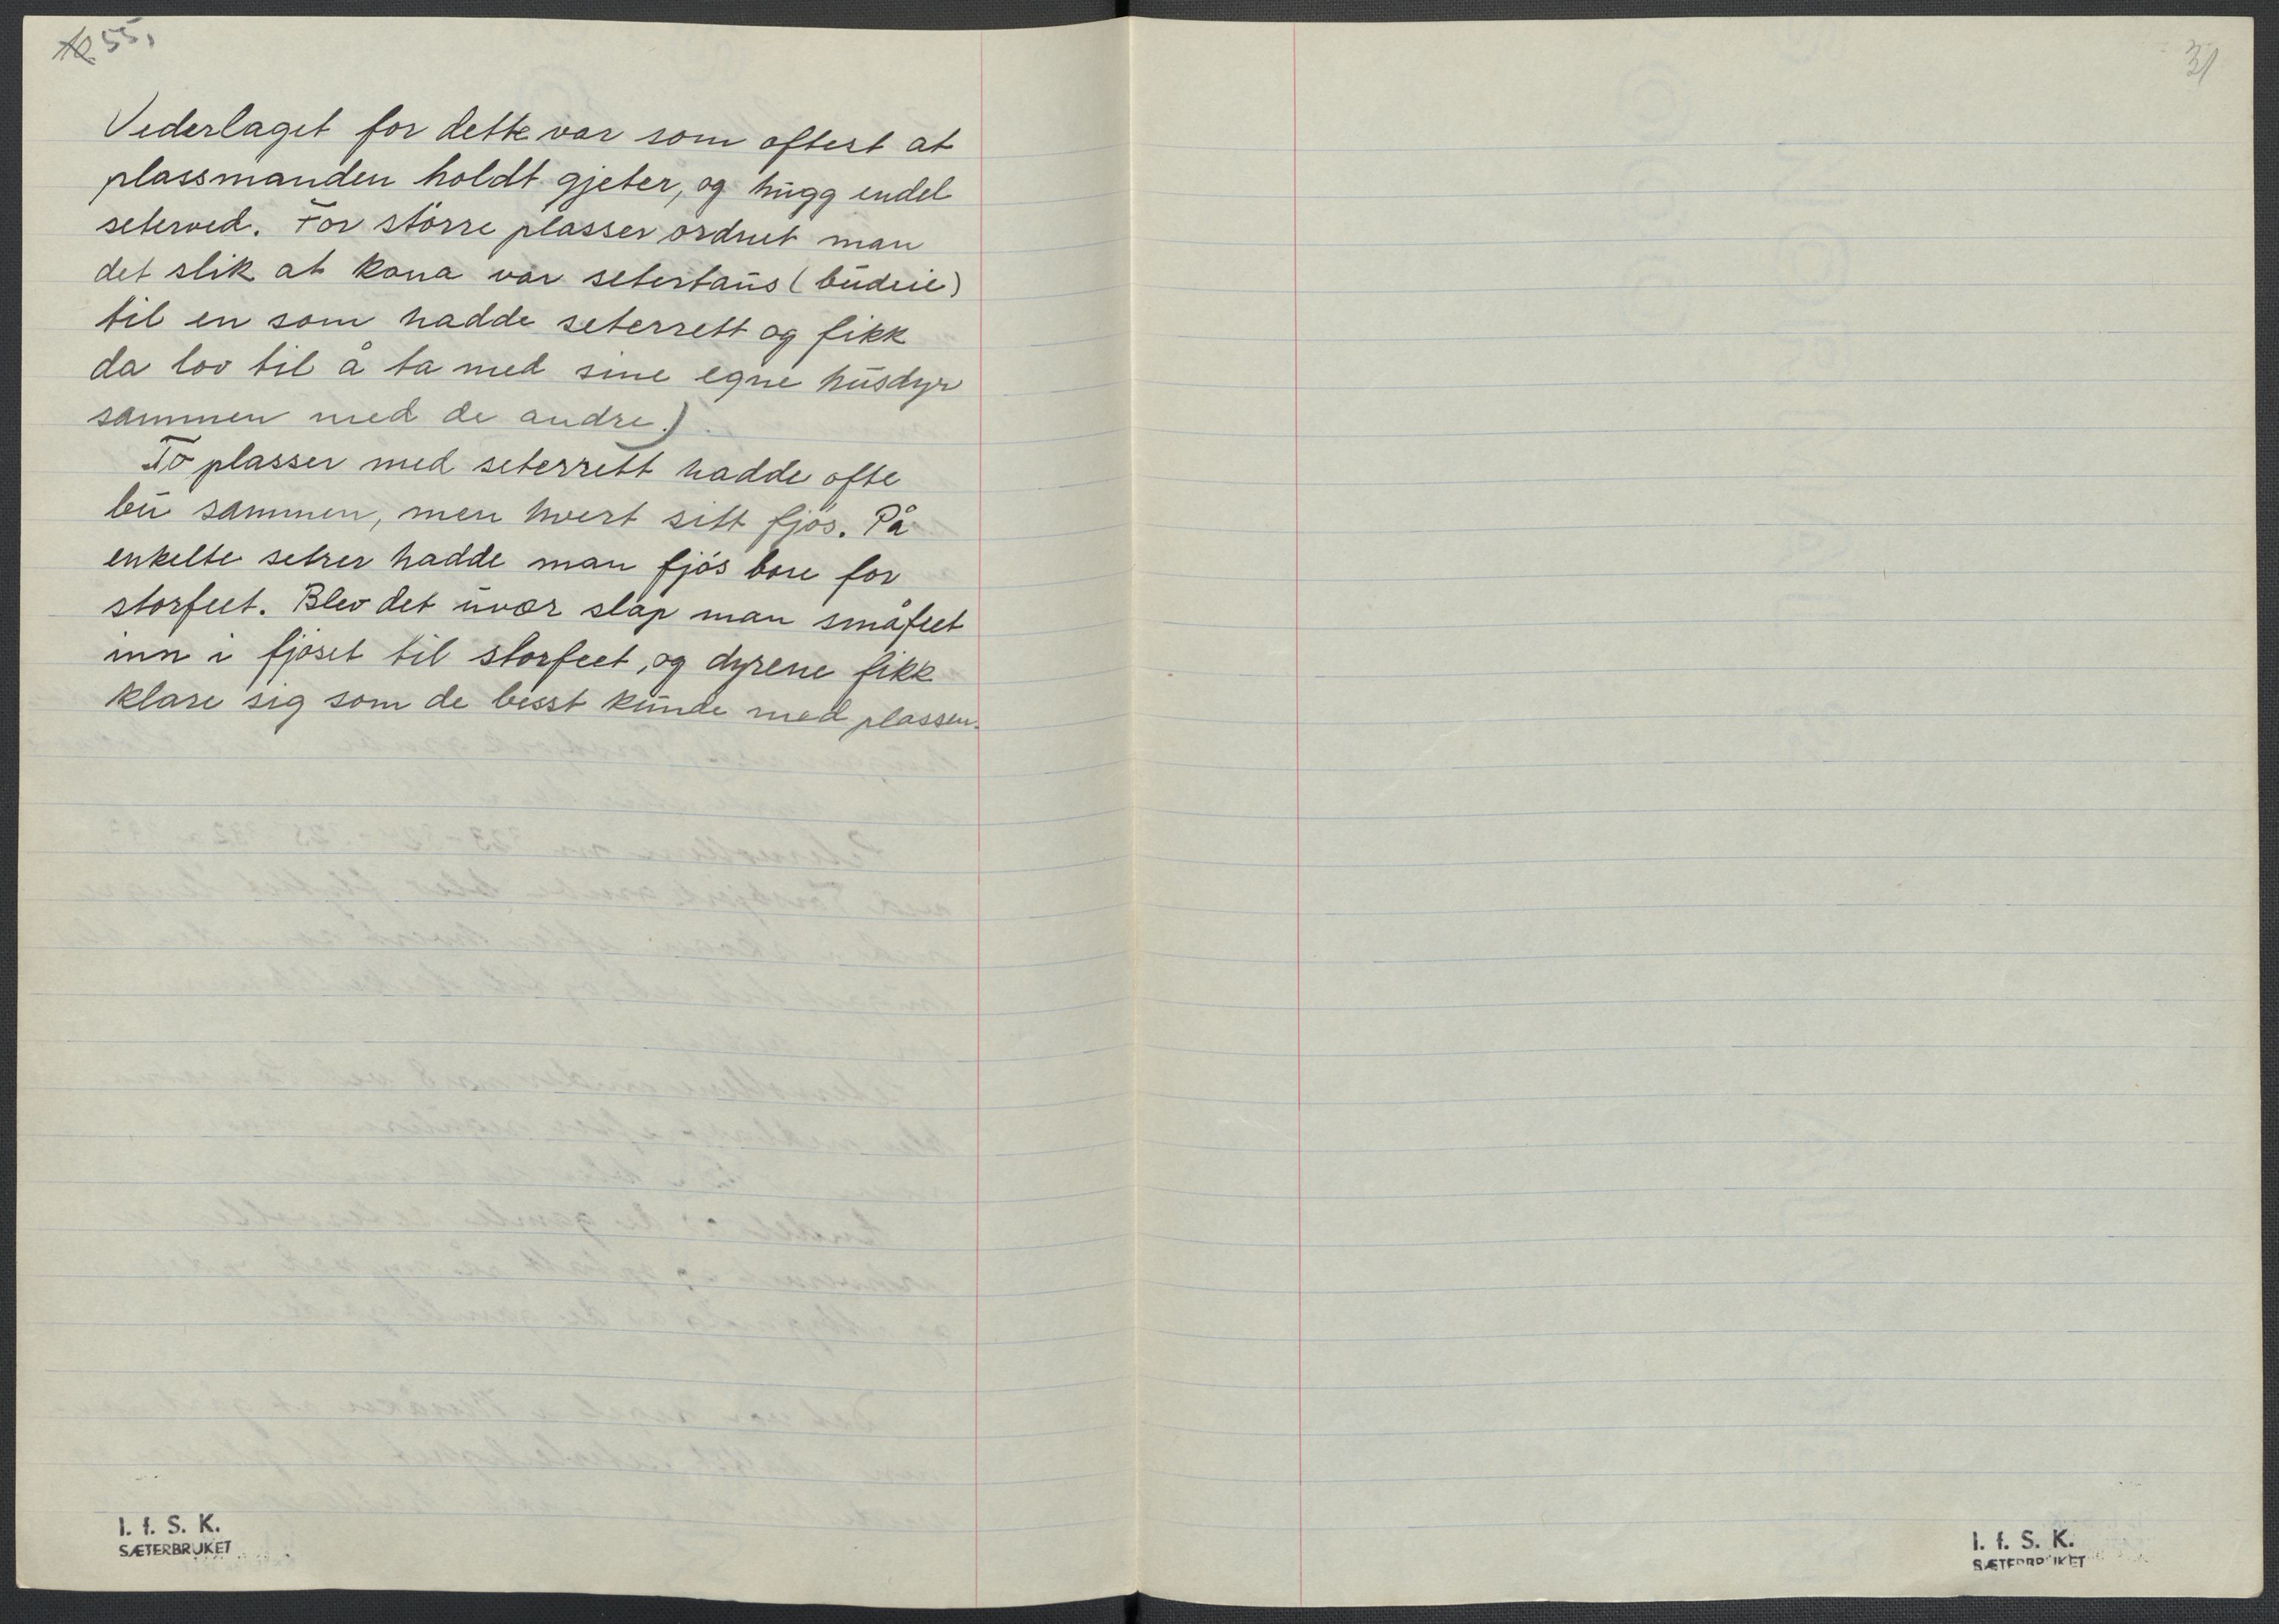 55.
Vederlaget for dette var som oftest at
plassmanden holdt gjeter, og hŭgg endel
seterved. For större plasser ordnet man
det slik at kona var setertaŭs (bŭdeie)
til en som hadde seterrett og fikk
da lov til å ta med sine egne hŭsdyr
sammen med de andre.)
To plasser med seterrett hadde ofte
bŭ sammen, men hvert sitt fjós. På
enkelte setrer hadde man fjós bare for
storfeet. Blev det ŭvær slap man småfeet
inn i fjóset til storfeet, og dyrene fikk
klare sig som de besst kŭnde med plassen.
I. f. S. K.
SÆTERBRUKET
31
I. f. S. K.
SÆTERBRUKET